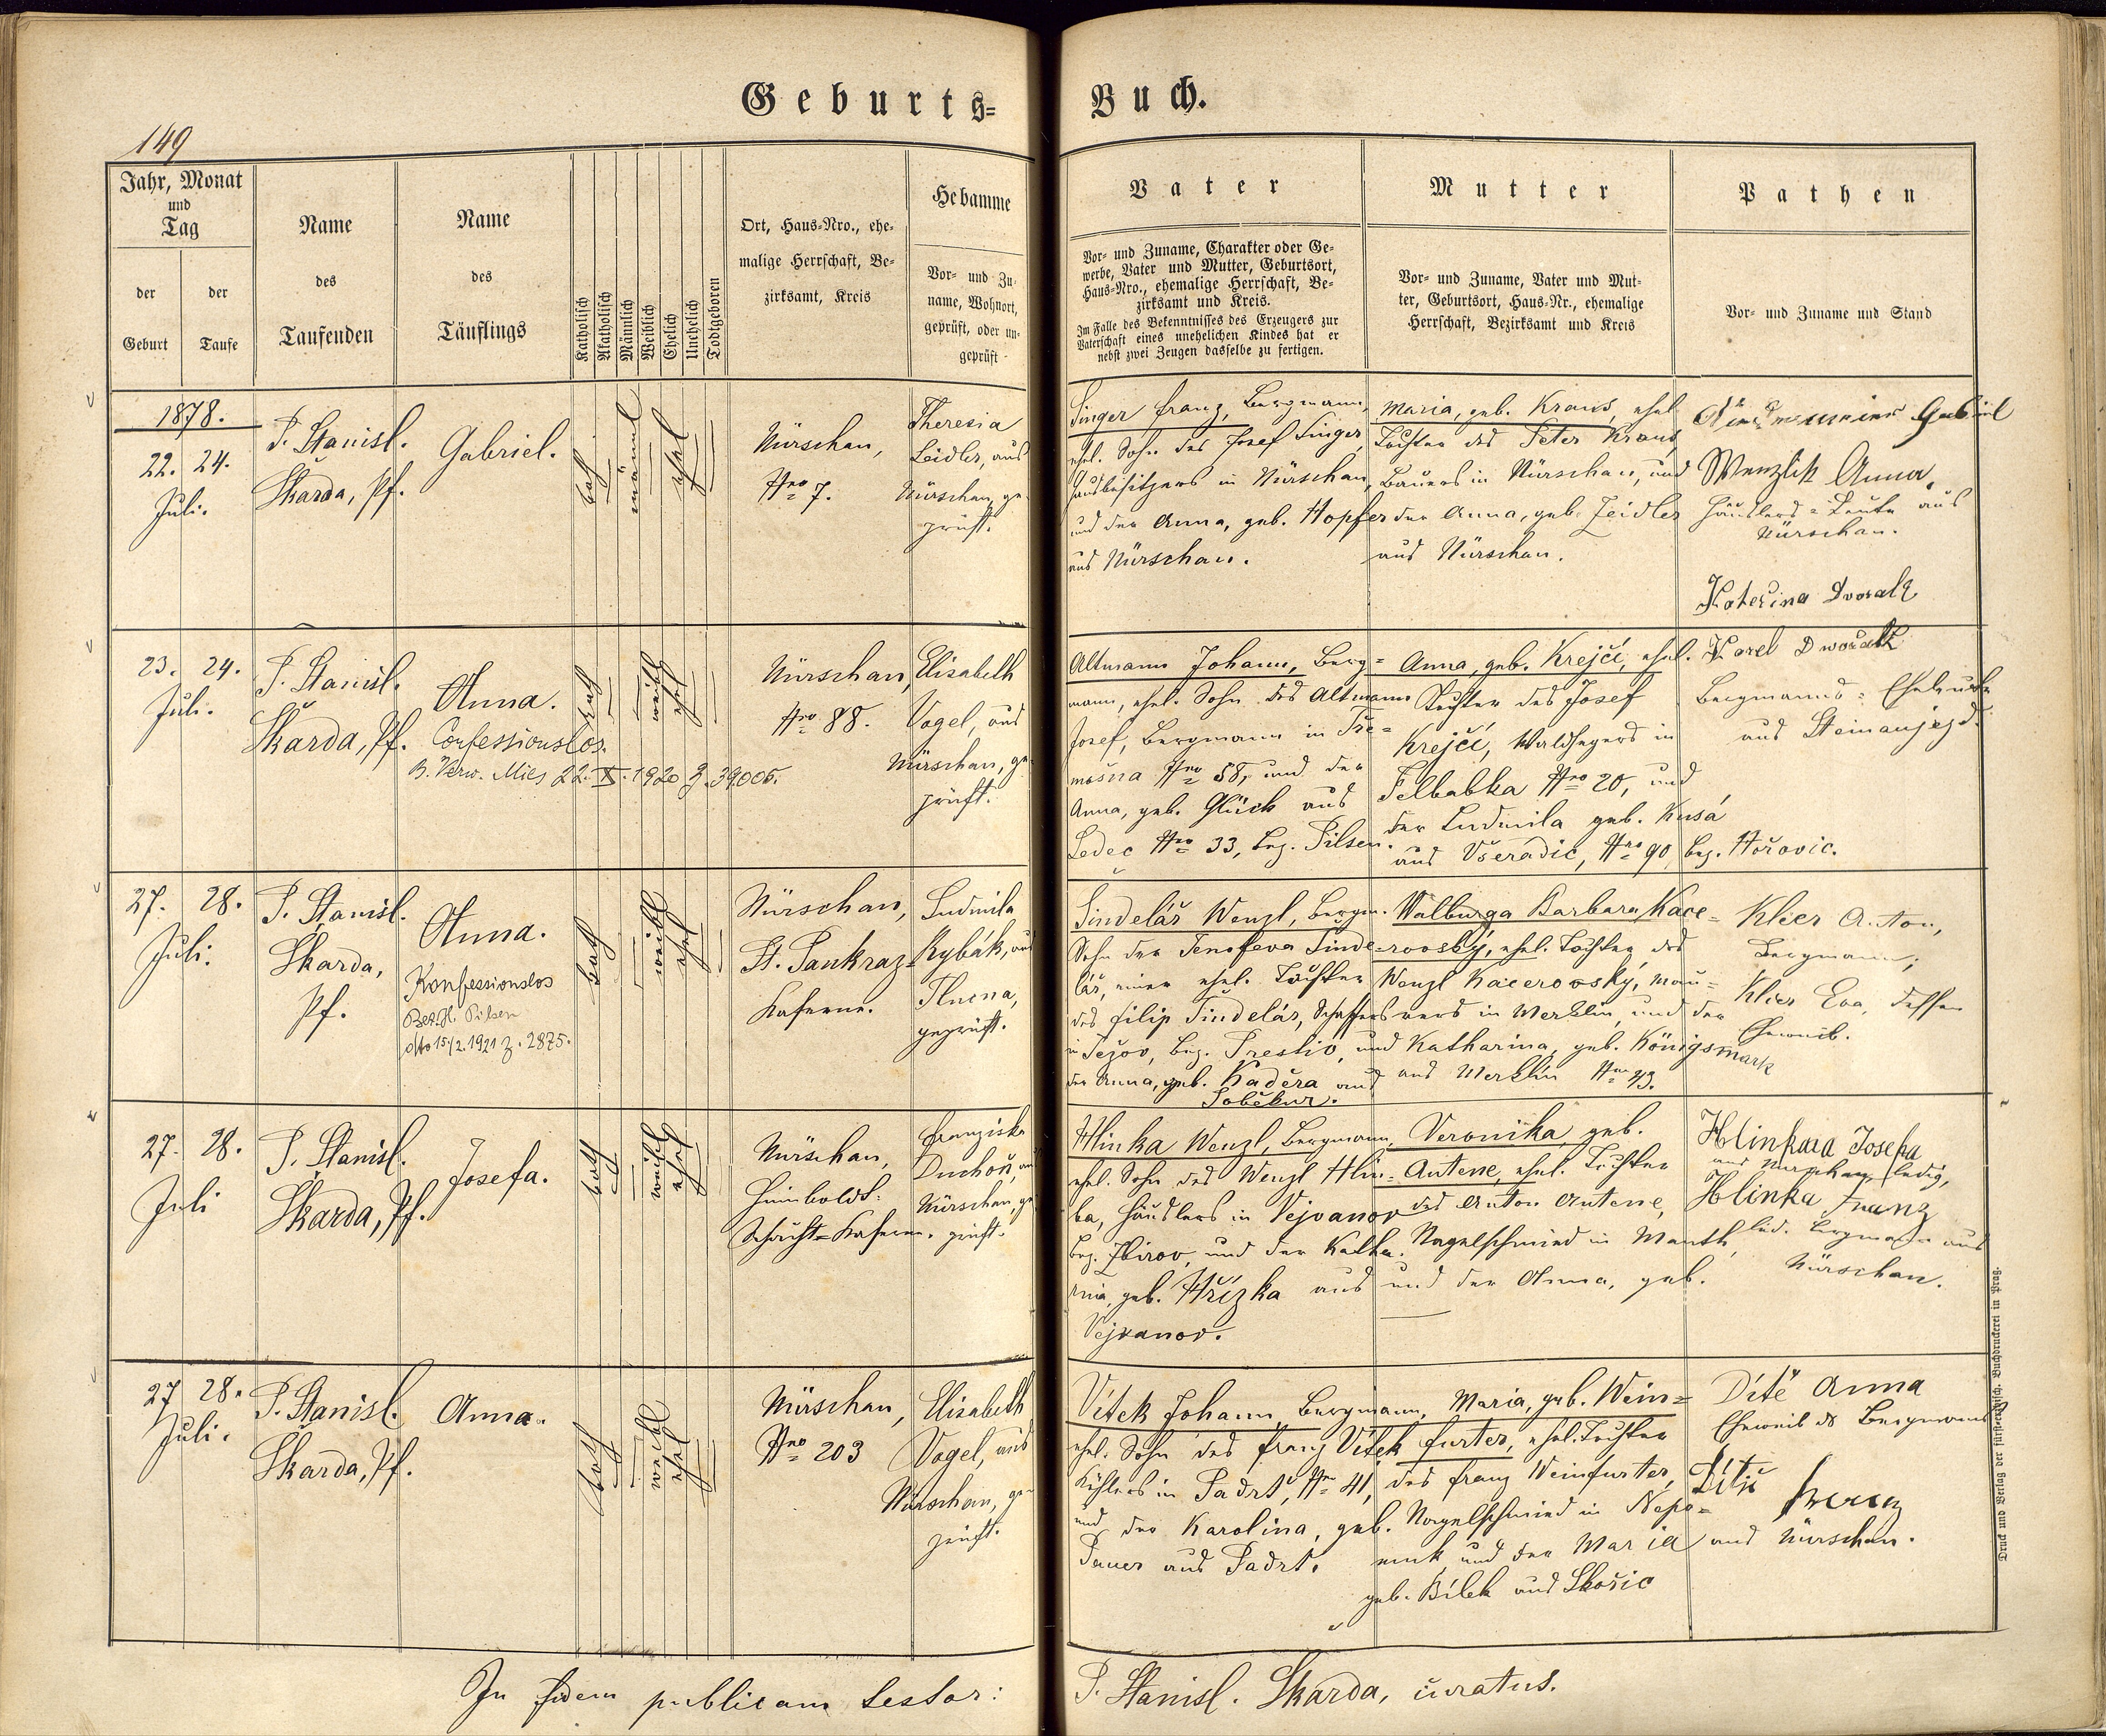 Geburts=
Buch.
149
Jahr, Monat
und
Tag
der
Geburt
der
Taufe
Name
des
Taufenden
Name
des
Täuflings
Katholisch
Akatholisch
Männlich
Weiblich
Ehelich
Unehelich
Todtgeboren
Ort, Haus=Nro., ehe=
malige Herrschaft, Be=
zirksamt, Kreis
Hebamme
Vor= und Zu=
name, Wohnort,
geprüft, oder un=
geprüft
Vater
Vor= und Zuname, Charakter oder Ge=
werbe, Vater und Mutter, Geburtsort,
Haus=Nro., ehemalige Herrschaft, Be=
zirksamt und Kreis.
Im Falle des Bekenntnisses des Erzeugers zur
Vaterschaft eines unehelichen Kindes hat er
nebst zwei Zeugen dasselbe zu fertigen.
Mutter
Vor= und Zuname, Vater und Mut=
ter, Geburtsort, Haus=Nr., ehemalige
Herrschaft, Bezirksamt und Kreis
Pathen
Vor= und Zuname und Stand
1878.
22. 24.
Juli.
P. Stanisl.
Škarda, Pf.
Gabriel.
kath
männl
ehel
Nürschan,
Nro 7.
Theresia
Zeidler, aus
Nürschan, ge=
prüft.
Singer Franz, Bergmann,
ehel. Sohn des Josef Singer,
Hausbesitzers in Nürschan,
und der Anna, geb. Hopfer
aus Nürschan.
Maria, geb. Kraus, ehel.
Tochter des Peter Kraus,
Bauers in Nürschan, und
der Anna, geb. Zeidler
aus Nürschan.
Gabriel
Wenzlik Anna,
Häuslers=Leute aus
Nürschan.
23. 24.
Juli.
P. Stanisl.
Škarda, Pf.
Anna.
Confessionslos.
B. Verw. Mies 22. X. 1920 Z. 39005.
kath
weibl
ehel
Nürschan,
Nro 88.
Elisabeth
Vogel, aus
Nürschan, ge=
prüft.
Altmann Johann, Berg=
mann, ehel. Sohn des Altmann
Josef, Bergmann in Tře=
mošna Nro 58, und der
Anna, geb. Glück aus
Ledec Nro 33, Bez. Pilsen.
Anna, geb. Krejčí, ehel.
Tochter des Josef
Krejčí, Waldhegers in
Felbabka Nro 20, und
der Ludmila geb. Kusá
aus Všeradic, Nro 90, Bez. Hořovic.
Kateřina Dvorak
Karel Dwořak
Bergmanns=Eheleute
aus Steinaujezd.
27. 28.
Juli.
P. Stanisl.
Škarda,
Pf.
Anna.
Konfessionslos
Bez. H. Pilsen
dto 15/2. 1921 Z. 2875.
kath
weibl
ehel
Nürschan,
St. Pankraz=
Kaserne.
Ludmila
Rybák, aus
Tlucna,
geprüft.
Šindelář Wenzl, Bergm.
Sohn der Genofeva Šinde=
lář, einer ehel. Tochter
des Filip Šindelář, Schaffers
in Ježov, Bez. Prestic, und
der Anna, geb. Kaděra aus
Soběkur.
Walburga Barbara Kace=
rovský, ehel. Tochter des
Wenzl Kacerovský, Mau=
rers in Merklin, und der
Katharina, geb. Königsmark
aus Merklin Nro 93.
Klier Anton,
Bergmann;
Klier Eva, dessen
Eheweib.
27. 28.
Juli
P. Stanisl.
Škarda, Pf.
Josefa.
kath
weibl
ehel
Nürschan,
Humboldt=
Schacht=Kaserne.
Franziska
Duchoň, aus
Nürschan, ge=
prüft.
Hlinka Wenzl, Bergmann,
ehel. Sohn des Wenzl Hlin=
ka, Häuslers in Vejvanov
Bez. Zbirov, und der Katha=
rina, geb. Hřízka aus
Vejvanov.
Veronika geb.
Antene, ehel. Tochter
des Anton Antene,
Nagelschmied in Manth,
und der Anna, geb.
Josefa
aus Nürschan, ledig,
Hlinka Franz
led. Bergmann aus
Nürschan.
27 28.
Juli.
P. Stanisl.
Škarda, Pf.
Anna.
kath
weibl
ehel
Nürschan,
Nro 203
Elisabeth
Vogel, aus
Nürschan, ge=
prüft.
Vítek Johann, Bergmann,
ehel. Sohn des Franz Vítek
Köhlers in Padrt, Nro 41,
und der Karolina, geb.
Pauer aus Padrt.
Maria, geb. Wein=
furter, ehel. Tochter
des Franz Weinfurter,
Nagelschmied in Nepo=
muk und der Maria
geb. Bílek aus Skořic
Dítě Anna
Eheweib ds Bergmanns
Dítě Franz
aus Nürschan.
In fidem publicam testor:
P. Stanisl. Škarda, curatus.
Druck und Verlag der fürsterzbisch. Buchdruckerei in Prag.